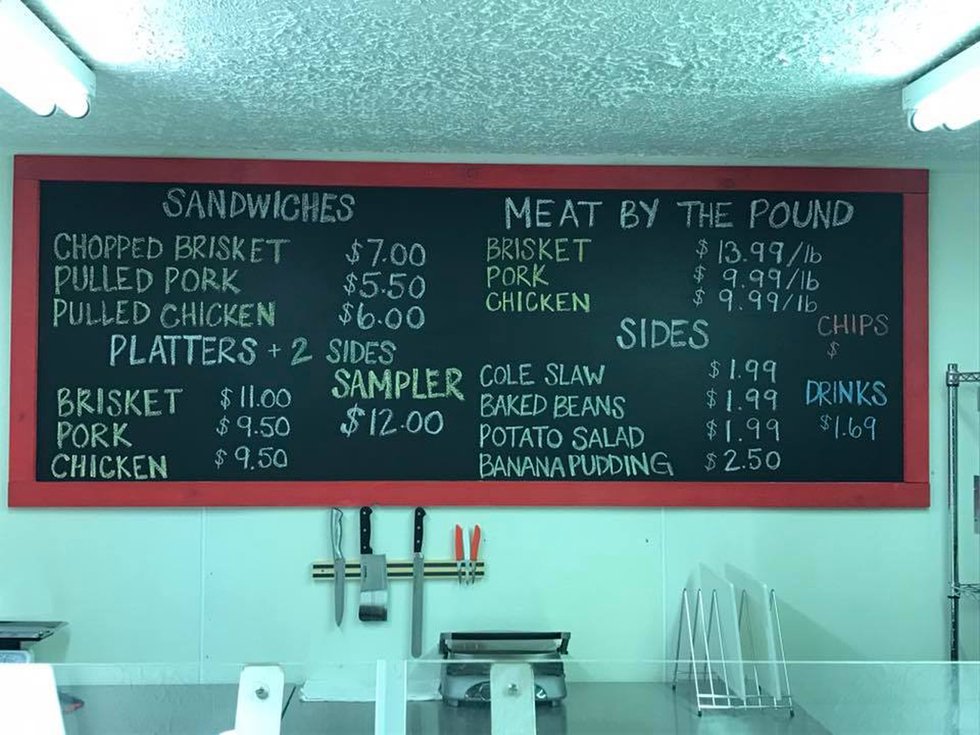 SANDWICHES
CHOPPED BRISKET $7.00
PULLED PORK $5.50
PULLED CHICKEN $6.00
PLATTERS + 2 SIDES
BRISKET $11.00
PORK $9.50
CHICKEN $9.50
SAMPLER
$12.00
MEAT BY THE POUND
BRISKET $13.99/lb
PORK $9.99/lb
CHICKEN $9.99/lb
SIDES
COLE SLAW $1.99
BAKED BEANS $1.99
POTATO SALAD $1.99
BANANA PUDDING $2.50
CHIPS
$
DRINKS
$1.69